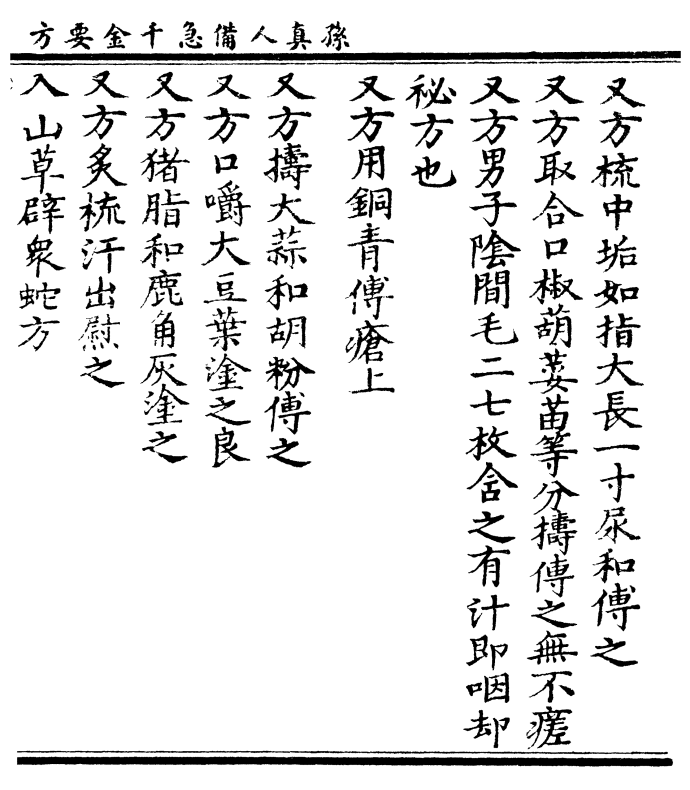 孫真人備急千金要方
又方梳中垢如指大長一寸尿和傅之
又方取合口椒葫荽苗等分擣傅之無不瘥
又方男子陰間毛二七枚含之有汁即咽却
秘方也
又方用銅青傅瘡上
又方擣大蒜和胡粉傅之
又方口嚼大豆葉塗之良
又方猪脂和鹿角灰塗之
又方炙梳汗出慰之
入山草辟衆蛇方